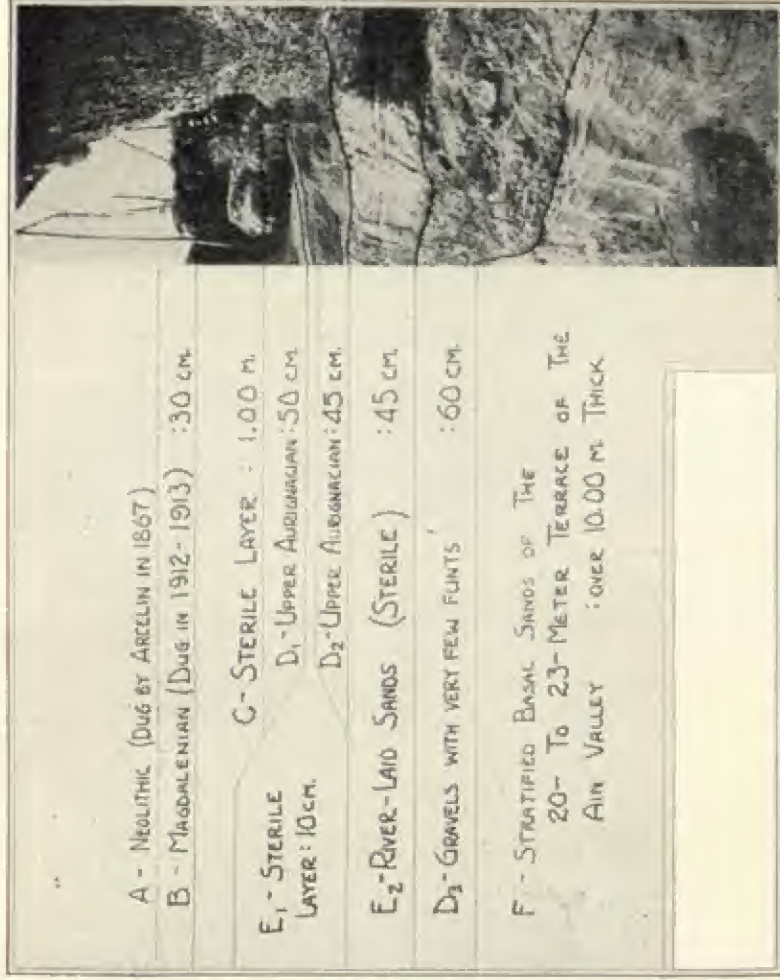 A - NEOLITHIC (DUG BY ARCELIN IN 1867)
B - MAGDALENIAN (DUG IN 1912-1913) : 30 CM.
C - STERILE LAYER : 1.00 M.
D₁ - UPPER AURIGNACIAN : 50 CM
E₁ - STERILE
LAYER : 10 CM.
D₂ - UPPER AURIGNACIAN : 45 CM.
E₂ - RIVER-LAID SANDS (STERILE) : 45 CM.
D₃ - GRAVELS WITH VERY FEW FLINTS : 60 CM.
F - STRATIFIED BASAL SANDS OF THE
20- TO 23- METER TERRACE OF THE
AIN VALLEY : OVER 10.00 M. THICK